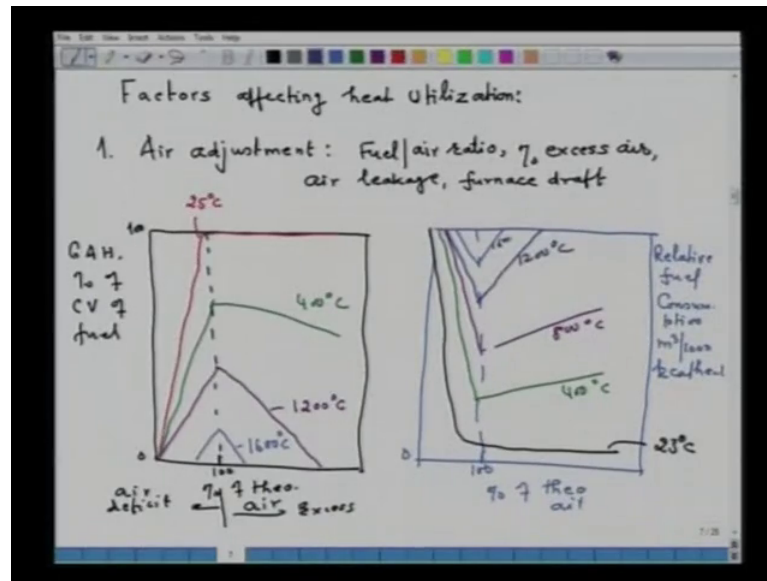 File Edit View Insert Actions Tools Help
Factors affecting heat utilization:
1. Air adjustment: Fuel/air ratio, % excess air,
air leakage, furnace draft
25°C
100
G.A.H.
% of
CV of
fuel
400°C
1200°C
1600°C
0
100
air deficit
% of theo.
air
Excess
1200°C
800°C
400°C
23°C
0
100
% of theo
air
Relative
fuel
Consum-
ption
m³/1000
kcal
7/28
7